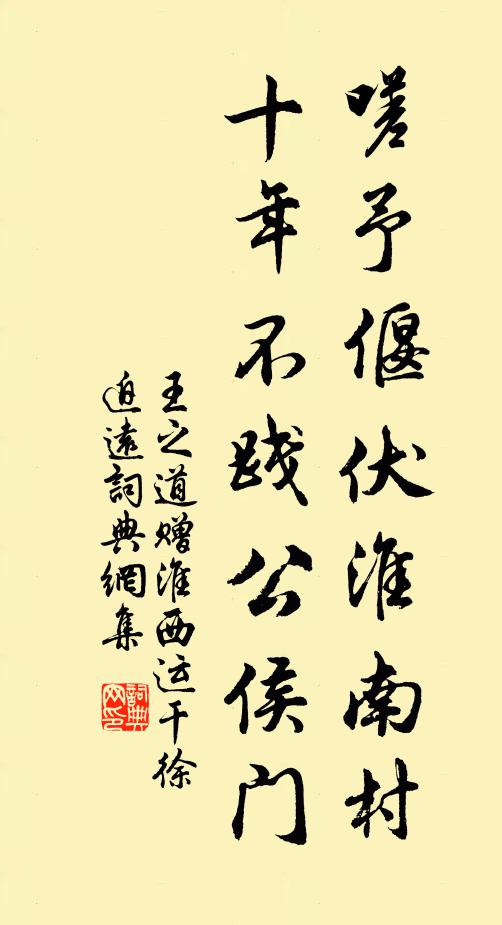 嗟予偃伏淮南村
十年不践公侯门
王之道赠淮西运干徐
迫远詞典網集
詞典网印